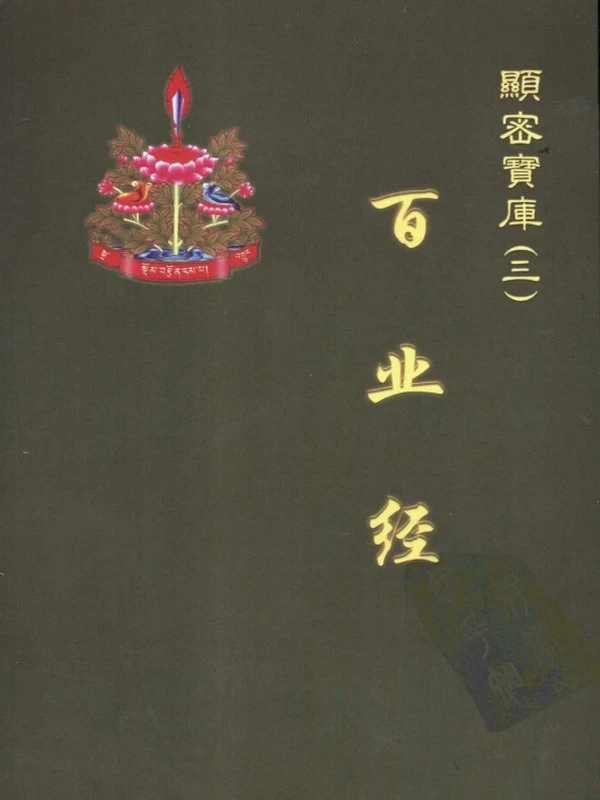 顯密寶庫（三）
百业经